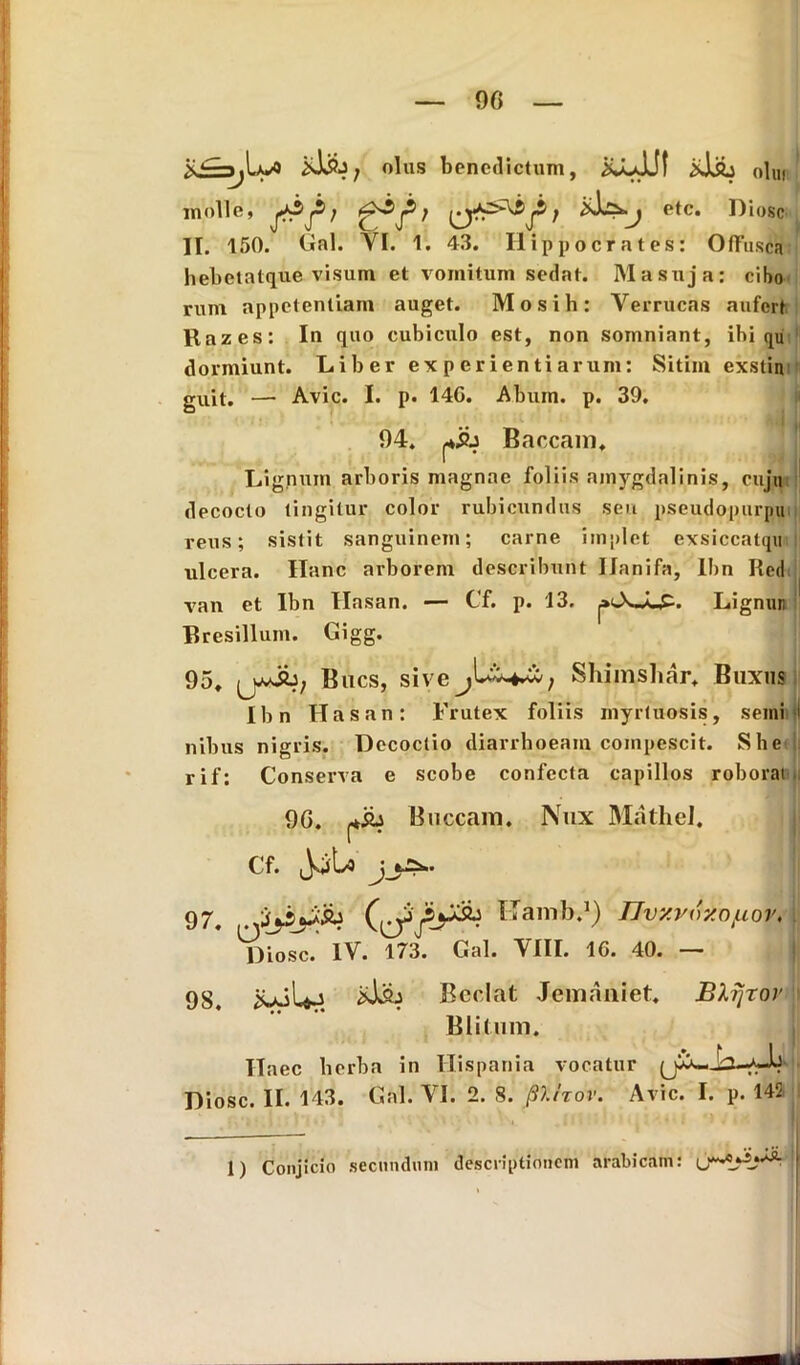 — 96 —
بقلة مباركة, olus benedictum, بقلة اللينة olus
molle, etc. Diosc.
II. 150. Gal. VI. 1. 43. Hippocrates: Offusca
hebetatque visum et vomitum sedat. Masuja: cibo
rum appetentiam auget. Mosih: Verrucas aufert
Razes: In quo cubiculo est, non somniant, ibi qui
dormiunt. Liber experientiarum: Sitim exstin
guit. — Avic. I. p. 146. Abum. p. 39.
94. بقم Baccam.
Lignum arboris magnae foliis amygdalinis, cuju
decocto tingitur color rubicundus seu pseudopurpu
reus; sistit sanguinem; carne implet exsiccatqu
ulcera. Hanc arborem describunt Hanifa, Ibn Red
van et Ibn Hasan. — Cf. p. 13. عندم. Lignum
Bresillum. Gigg.
95. بقس, Bucs, sive شمشار, Shimshâr. Buxus
Ibn Hasan: Frutex foliis myrtuosis, semi
nibus nigris. Decoctio diarrhoeam compescit. She
rif: Conserva e scobe confecta capillos roborat
96. بقم Buccam. Nux Mâthel.
Cf. جوز ماثل.
97. Hamb.¹) Πυκνόκομον.
Diosc. IV. 173. Gal. VIII. 16. 40. —
98. بقلة يمانية Beclat Jemâniet. Βλῆτον
Blitum.
Haec herba in Hispania vocatur
Diosc. II. 143. Gal. VI. 2. 8. βλίτον. Avic. I. p. 142
1) Conjicio secundum descriptionem arabicam: